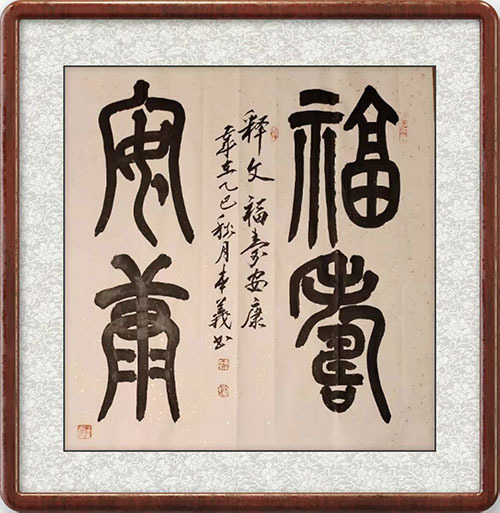 福壽
释文福寿安康
岁在乙巳秋月本義书
安康